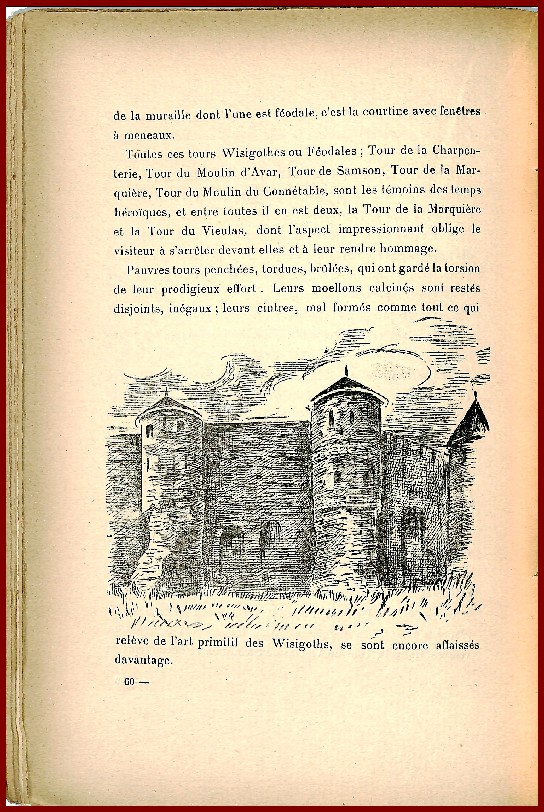 de la muraille dont l'une est féodale, c'est la courtine avec fenêtres
à meneaux.
Toutes ces tours Wisigothes ou Féodales ; Tour de la Charpen-
terie, Tour du Moulin d'Avar, Tour de Samson, Tour de la Mar-
quière, Tour du Moulin du Connétable, sont les témoins des temps
héroïques, et entre toutes il en est deux, la Tour de la Marquière
et la Tour du Vieulas, dont l'aspect impressionnant oblige le
visiteur à s'arrêter devant elles et à leur rendre hommage.
Pauvres tours penchées, tordues, brûlées, qui ont gardé la torsion
de leur prodigieux effort. Leurs moellons calcinés sont restés
disjoints, inégaux ; leurs cintres, mal formés comme tout ce qui
relève de l'art primitif des Wisigoths, se sont encore affaissés
davantage.
60 —